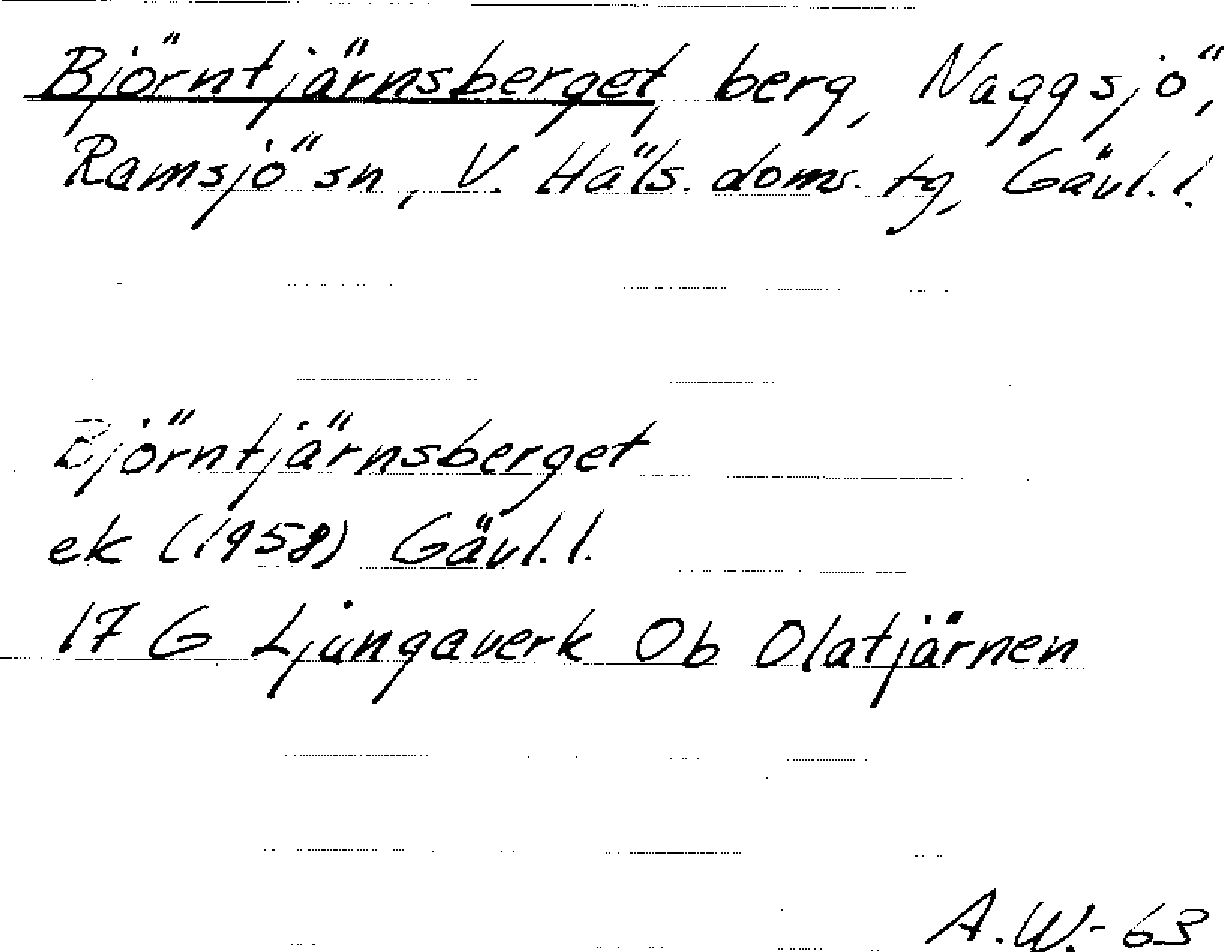 Björntjärnsberget, berg, Naggsjö,
Ramsjö sn, V. Häls. doms. tg, Gävl. l.
Björntjärnsberget
ek (1958) Gävl. l.
17 G Ljungaverk Ob Olatjärnen
A.W.-63